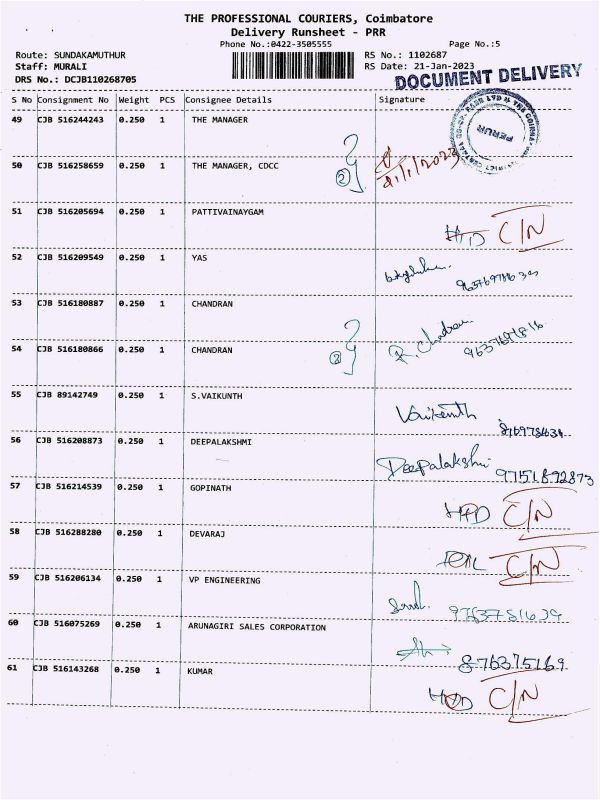 THE PROFESSIONAL COURIERS, Coimbatore
Delivery Runsheet - PRR
Phone No.:0422-3505555 Page No.:5
Route: SUNDAKAMUTHUR RS No.: 1102687
Staff: MURALI RS Date: 21-Jan-2023
DRS No.: DCJB110268705
DOCUMENT DELIVERY
S No Consignment No Weight PCS Consignee Details Signature
49 CJB 516244243 0.250 1 THE MANAGER
PERUR
50 CJB 516258659 0.250 1 THE MANAGER, CDCC 2 21/1/2023
51 CJB 516205694 0.250 1 PATTIVAINAYGAM C/N
52 CJB 516209549 0.250 1 YAS
53 CJB 516180887 0.250 1 CHANDRAN
54 CJB 516180866 0.250 1 CHANDRAN 2 R. Chandran
55 CJB 89142749 0.250 1 S.VAIKUNTH Vaikunth
56 CJB 516208873 0.250 1 DEEPALAKSHMI Deepalakshmi 9751892873
57 CJB 516214539 0.250 1 GOPINATH C/N
58 CJB 516288280 0.250 1 DEVARAJ C/N
59 CJB 516206134 0.250 1 VP ENGINEERING
60 CJB 516075269 0.250 1 ARUNAGIRI SALES CORPORATION 876375169
61 CJB 516143268 0.250 1 KUMAR C/N